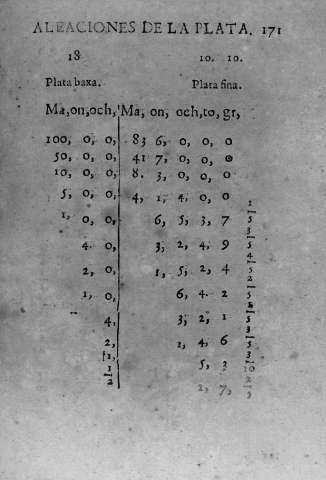 ALEACIONES DE LA PLATA. 171
18 10. 10.
Plata baxa. Plata fina.
Ma, on, och, Ma, on, och, to, gr,
100, 0, 0, 83 6, 0, 0, 0
50, 0, 0, 41 7, 0, 0, 0
10, 0, 0, 8. 3, 0, 0, 0
5, 0, 0, 4, 1, 4, 0, 0
1, 0, 0, 6, 5, 3, 7 1/5
4. 0, 3, 2, 4, 9 3/5
2, 0, 1, 5, 2, 4 4/5
1, 0, 6, 4. 2 2/5
4, 3, 2, 1 1/5
2, 1, 4, 6 3/5
1, 5, 3 3/10
1/2 2, 7,